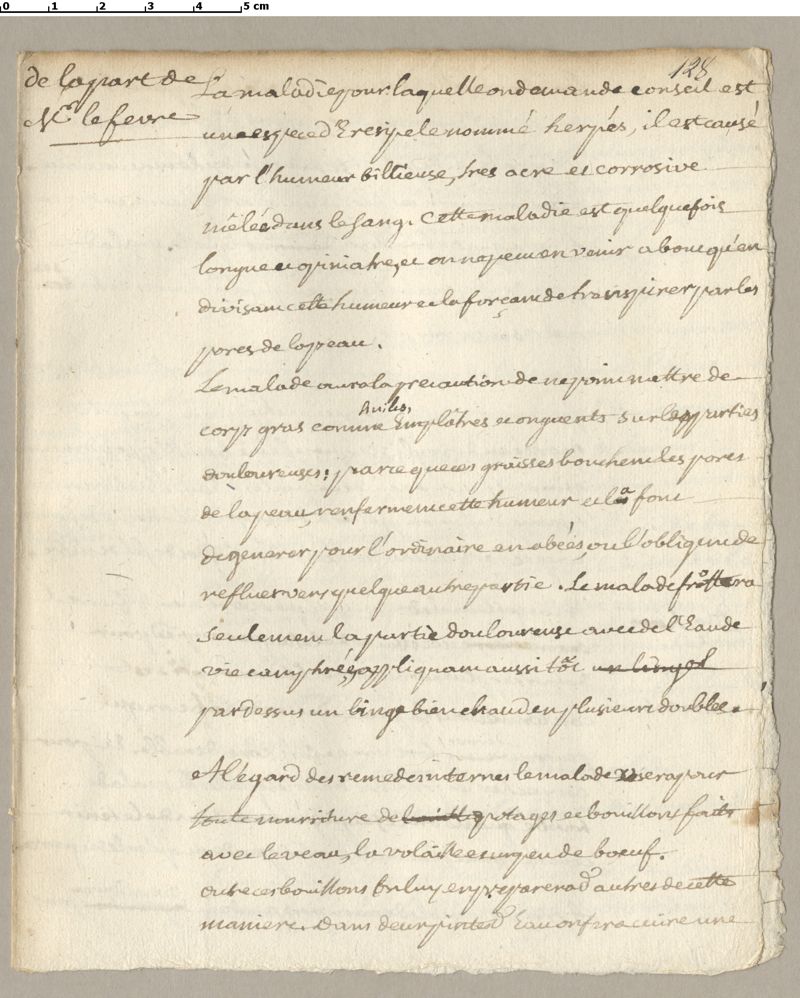 0 1 2 3 4 5 cm
128
de la part de
Mr. lefevre
La maladie pour laquelle on demande conseil est
une espece d'Eresipele nommé herpés, il est causé
par l'humeur billieuse, tres acre et corrosive
mêlée dans le sang. Cette maladie est quelquefois
longue et opiniatre, et on ne peut en venir a bout qu'en
divisant cette humeur et la forçant de transpirer par les
pores de la peau.
Le malade aura la precaution de ne point mettre de
corps gras comme huiles, Emplâtres et onguents sur les parties
douloureuses; parce que ces graisses bouchent les pores
de la peau, renferment cette humeur et la font
degenerer pour l'ordinaire en abcés, ou l'obligent de
refluer vers quelque autre partie. Le malade frottera
seulement la partie douloureuse avec de l'Eau de
vie camphrée, appliquant aussi tôt un linge
par dessus un linge bien chaud en plusieurs doubles.
A l'égard des remedes internes le malade usera pour
toute nourriture de potages et bouillons faits
avec le veau, la volaille et un peu de boeuf.
outre ces bouillons on luy en preparera d'autres de cette
maniere. Dans deux pintes d'Eau on fera cuire une